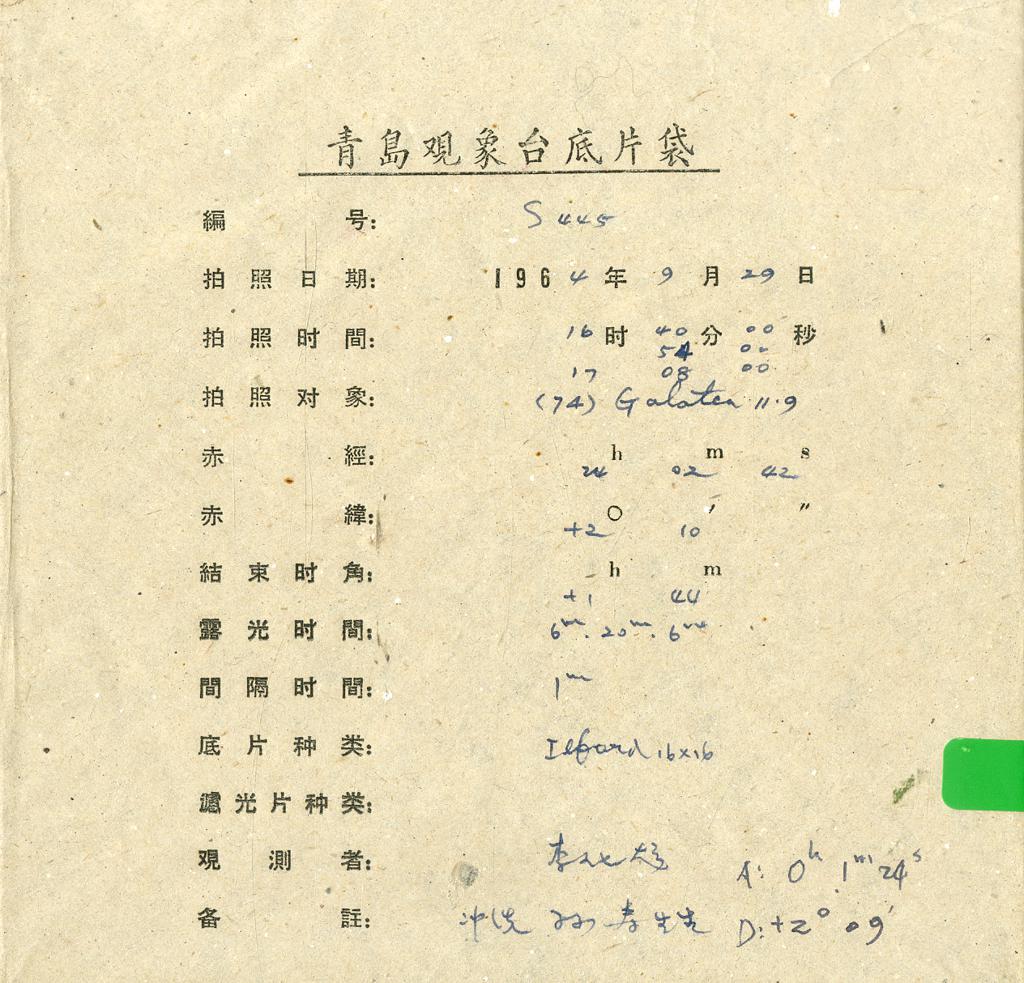 青島观象台底片袋
編号: S 445
拍照日期: 1964年9月29日
拍照时間: 16时40分00秒
54 00
17 08 00
拍照对象: (74) Galatea 11.9
赤經: 24h 02m 42s
赤緯: +2° 10′ ″
結束时角: +1h 44m
露光时間: 6m. 20m. 6m
間隔时間: 1m
底片种类: Ilford 16×16
濾光片种类:
观測者: 李
A: 0h 1m 24s
备註: 冲洗 孙寿
D: +2° 09′